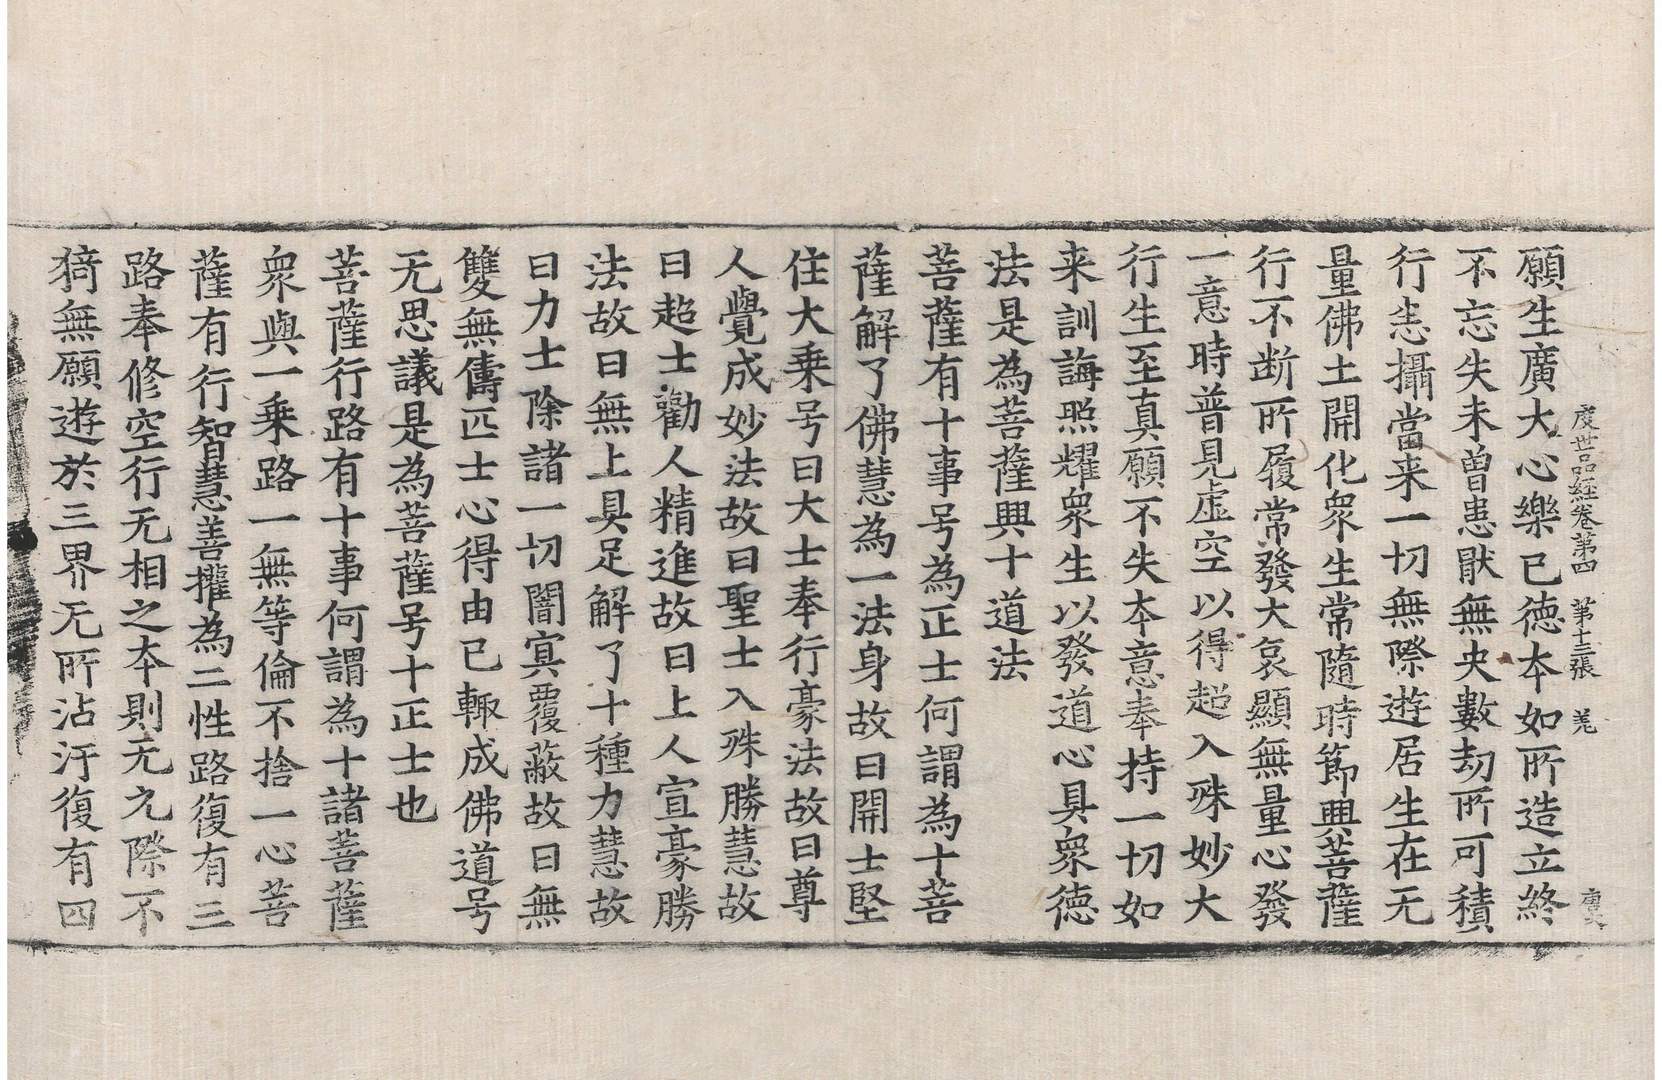 度世品経卷第四　第十三張　羌
願生廣大心樂已德本如所造立終
不忘失未曽恚猒無央數劫所可積
行恙攝當来一切無際遊居生在无
量佛土開化衆生常隨時節興菩薩
行不断所履常發大哀顯無量心發
一意時普見虚空以得超入殊妙大
行生至真願不失本意奉持一切如
来訓誨照耀衆生以發道心具衆德
法是為菩薩興十道法
菩薩有十事号為正士何謂為十菩
薩解了佛慧為一法身故曰開士堅
住大乗号曰大士奉行豪法故曰尊
人覺成妙法故曰聖士入殊勝慧故
曰超士勸人精進故曰上人宣豪勝
法故曰無上具足解了十種力慧故
曰力士除諸一切闇冥覆蔽故曰無
雙無儔匹士心得由已輙成佛道号
无思議是為菩薩号十正士也
菩薩行路有十事何謂為十諸菩薩
衆與一乗路一無等倫不捨一心菩
薩有行智慧善權為二性路復有三
路奉修空行无相之本則无亢際不
猗無願遊於三界无所沾汙復有四